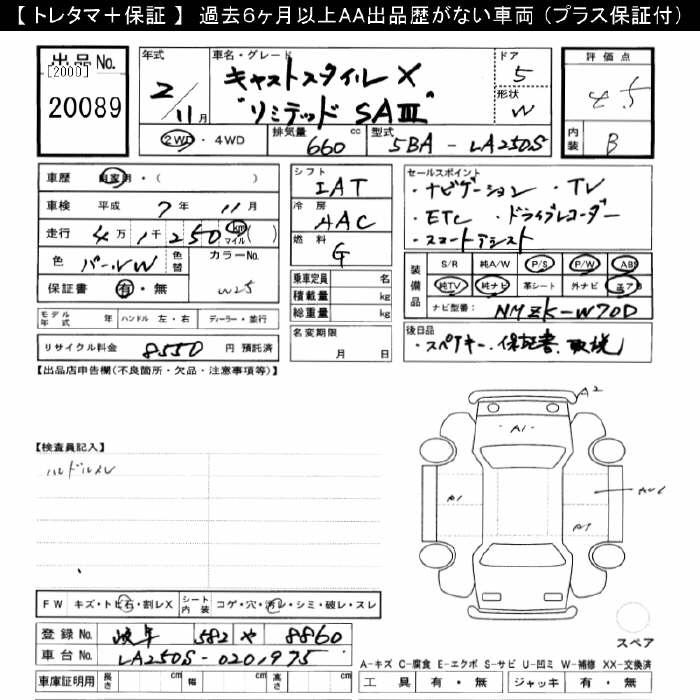 【 トレタマ＋保証 】 過去6ヶ月以上AA出品歴がない車両（プラス保証付）
出品No. [2000] 20089
年式 2/11月
車名・グレード キャストスタイル X "リミテッド SAⅢ"
ドア 5
形状 W
評価点 4.5
内装 B
2WD ・ 4WD 排気量 660 cc 型式 5BA - LA250S
車歴 自家用 ・（ ）
車検 平成 7 年 11 月
走行 4万 1千 250 km マイル ( )
色 パールW 色替 カラーNo. W25
保証書 有・無
モデル年式 年 ハンドル 左・右 ディーラー・並行
リサイクル料金 8550 円 預託済
シフト IAT
冷房 AAC
燃料 G
乗車定員 名
積載量 kg
総重量 kg
名変期限 月 日
セールスポイント
・ナビゲーション ・TV
・ETC ・ドライブレコーダー
・スマートアシスト
装備品 S/R 純A/W P/S P/W ABS
純TV 純ナビ 革シート 外ナビ エアB
ナビ型番: NMZK-W70D
後日品
・スペアキー・保証書、取説
【出品店申告欄(不良箇所・欠品・注意事項等)】
【検査員記入】
ハンドルスレ
A2
A1
A1
A1
FW キズ・トビ石・割レX シート内装 コゲ・穴・汚レ・シミ・破レ・スレ
登録No. 岐阜 582 や 8860
車台No. LA250S-0201975
車庫証明用 長さ cm 幅 cm 高さ cm
スペア
A-キズ C-腐食 E-エクボ S-サビ U-凹ミ W-補修 XX-交換済
工具 有・無 ジャッキ 有・無